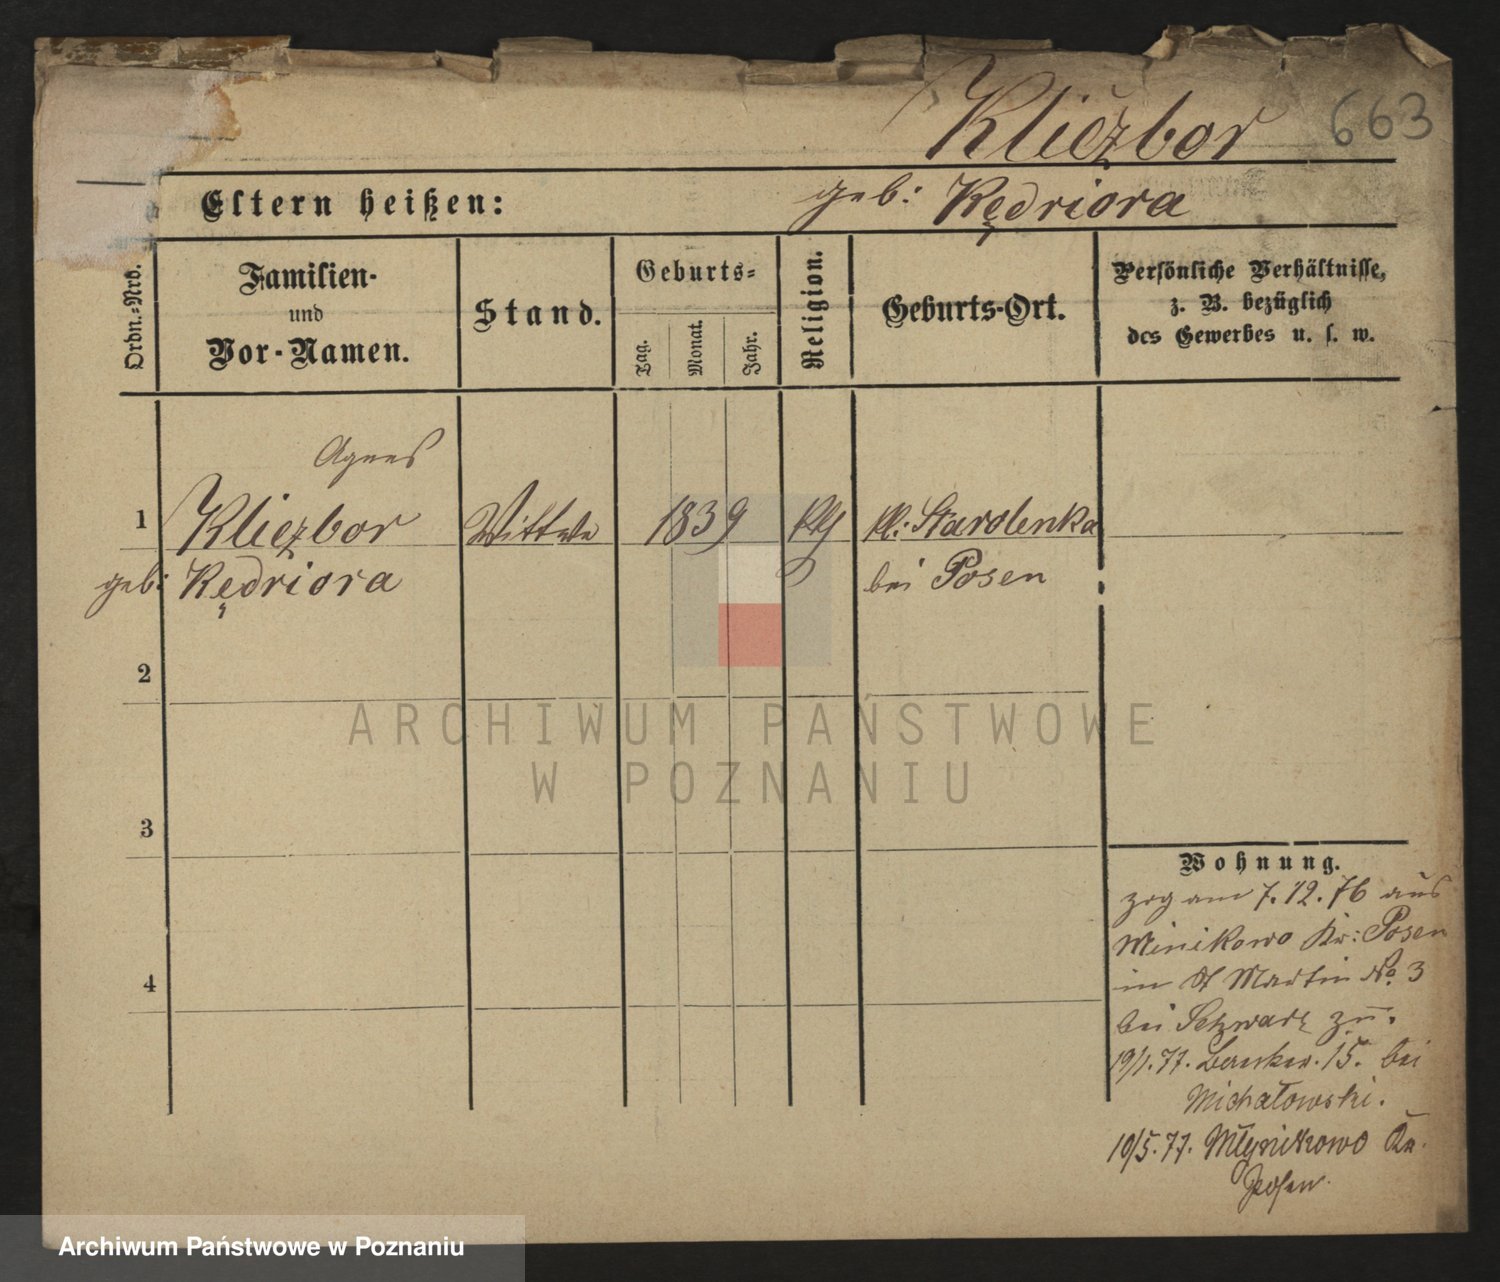 Kliezbor 663
Eltern heißen: geb: Kędziora
Ordn.-Nro. Familien- und Vor-Namen. Stand. Geburts- Tag. Monat. Jahr. Religion. Geburts-Ort. Persönliche Verhältnisse, z. B. bezüglich des Gewerbes u. s. w.
Agnes
1 Kliezbor Wittwe 1839 kl: Starolenka
geb: Kędziora bei Posen
2
3
4
Wohnung.
zog am 7.12.76 aus
Minikowo Kr: Posen
in St Martin No 3
bei Schwarz zu.
19/1.77. 15. bei
Michałowski.
10/5.77. Młynikowo Kr.
Posen
ARCHIWUM PAŃSTWOWE
W POZNANIU
Archiwum Państwowe w Poznaniu